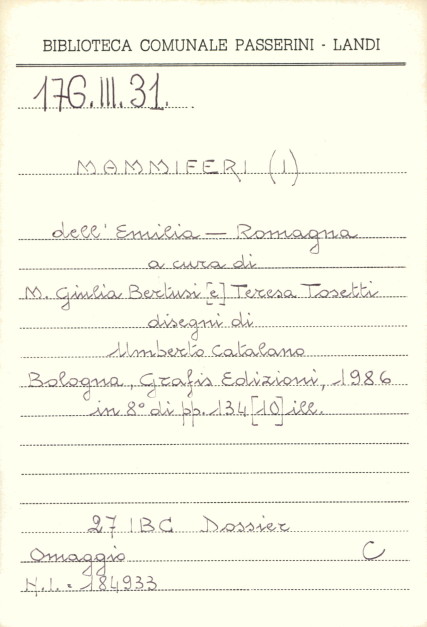 BIBLIOTECA COMUNALE PASSERINI - LANDI
176.III.31.
MAMMIFERI (I)
dell'Emilia — Romagna
a cura di
M. Giulia Bertusi [e] Teresa Tosetti
disegni di
Umberto Catalano
Bologna, Grafis Edizioni, 1986
in 8° di pp. 134 [10] ill.
27 IBC Dossier
Omaggio C
N.I. = 184933